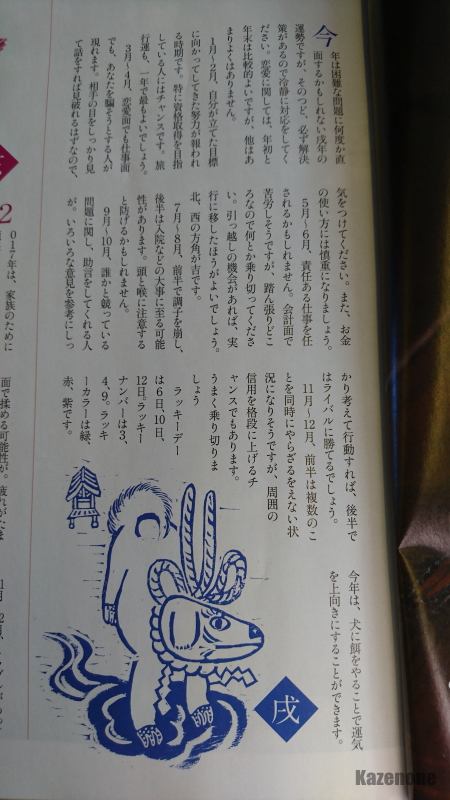 今年は困難な問題に何度か直
面するかもしれない戌年の
運勢ですが、そのつど、必ず解決
策があるので冷静に対応をしてく
ださい。恋愛に関しては、年初と
年末は比較的よいですが、他はあ
まりよくはありません。
1月~2月、自分が立てた目標
に向かってしてきた努力が報われ
る時期です。特に資格取得を目指
している人にはチャンスです。旅
行運も、一年で最もよいでしょう。
3月~4月、恋愛面でも仕事面
でも、あなたを騙そうとする人が
現れます。相手の目をしっかり見
て話をすれば見破れるはずなので、
気をつけてください。また、お金
の使い方には慎重になりましょう。
5月~6月、責任ある仕事を任
されるかもしれません。会計面で
苦労しそうですが、踏ん張りどこ
ろなので何とか乗り切ってくださ
い。引っ越しの機会があれば、実
行に移したほうがよいでしょう。
北、西の方角が吉です。
7月~8月、前半で調子を崩し、
後半は入院などの大事に至る可能
性があります。頭と喉に注意する
と防げるかもしれません。
9月~10月、誰かと競っている
問題に関し、助言をしてくれる人
が。いろいろな意見を参考にしっ
かり考えて行動すれば、後半で
はライバルに勝てるでしょう。
11月~12月、前半は複数のこ
とを同時にやらざるをえない状
況になりそうですが、周囲の
信用を格段に上げるチ
ャンスでもあります。
うまく乗り切りま
しょう
ラッキーデー
は6日、10日、
12日。ラッキー
ナンバーは3、
4、9。ラッキ
ーカラーは緑、
赤、紫です。
今年は、犬に餌をやることで運気
を上向きにすることができます。
戌
2017年は、家族のために
面で揉める可能性が。疲れがたま
Kazenone